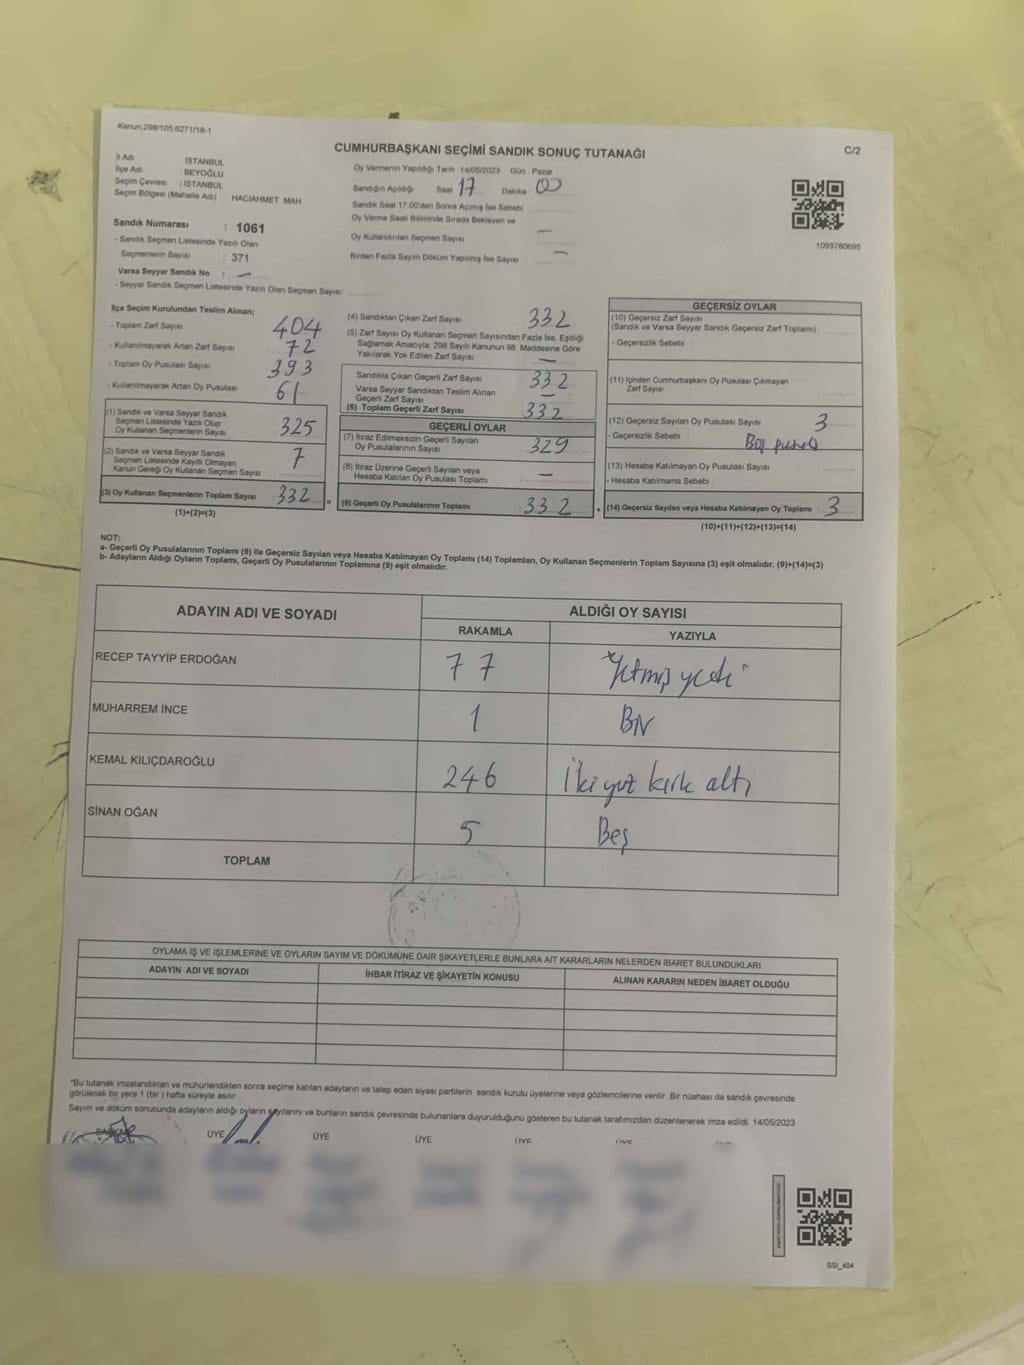 Kanun 298/105;6271/18-1
CUMHURBAŞKANI SEÇİMİ SANDIK SONUÇ TUTANAĞI
C/2
İl Adı İSTANBUL
İlçe Adı BEYOĞLU
Seçim Çevresi : İSTANBUL
Seçim Bölgesi (Mahalle Adı) HACIAHMET MAH
Sandık Numarası : 1061
- Sandık Seçmen Listesinde Yazılı Olan
Seçmenlerin Sayısı : 371
Varsa Seyyar Sandık No : -
- Seyyar Sandık Seçmen Listesinde Yazılı Olan Seçmen Sayısı:
Oy Vermenin Yapıldığı Tarih :14/05/2023 Gün : Pazar
Sandığın Açıldığı Saat 17 Dakika : 00
Sandık Saat 17.00'den Sonra Açımış İse Sebebi
Oy Verme Saati Bitiminde Sırada Bekleyen ve
Oy Kullandırılan Seçmen Sayısı -
Birden Fazla Sayım Döküm Yapılmış İse Sayısı -
1093780695
İlçe Seçim Kurulundan Teslim Alınan;
- Toplam Zarf Sayısı 404
- Kullanılmayarak Artan Zarf Sayısı 72
- Toplam Oy Pusulası Sayısı 393
- Kullanılmayarak Artan Oy Pusulası 61
(1) Sandık ve Varsa Seyyar Sandık
Seçmen Listesinde Yazılı Olup
Oy Kullanan Seçmenlerin Sayısı 325
(2) Sandık ve Varsa Seyyar Sandık
Seçmen Listesinde Kayıtlı Olmayan
Kanun Gereği Oy Kullanan Seçmen Sayısı 7
(3) Oy Kullanan Seçmenlerin Toplam Sayısı 332 =
(1)+(2)=(3)
(4) Sandıktan Çıkan Zarf Sayısı 332
(5) Zarf Sayısı Oy Kullanan Seçmen Sayısından Fazla İse, Eşitliği
Sağlamak Amacıyla; 298 Sayılı Kanunun 98. Maddesine Göre
Yakılarak Yok Edilen Zarf Sayısı -
Sandıkta Çıkan Geçerli Zarf Sayısı 332
Varsa Seyyar Sandıktan Teslim Alınan
Geçerli Zarf Sayısı -
(6) Toplam Geçerli Zarf Sayısı 332
GEÇERLİ OYLAR
(7) İtiraz Edilmeksizin Geçerli Sayılan
Oy Pusulalarının Sayısı 329
(8) İtiraz Üzerine Geçerli Sayılan veya
Hesaba Katılan Oy Pusulası Toplamı -
(9) Geçerli Oy Pusulalarının Toplamı 332 +
GEÇERSİZ OYLAR
(10) Geçersiz Zarf Sayısı
(Sandık ve Varsa Seyyar Sandık Geçersiz Zarf Toplamı)
- Geçersizlik Sebebi
(11) İçinden Cumhurbaşkanı Oy Pusulası Çıkmayan
Zarf Sayısı
(12) Geçersiz Sayılan Oy Pusulası Sayısı 3
- Geçersizlik Sebebi Boş
(13) Hesaba Katılmayan Oy Pusulası Sayısı
- Hesaba Katılmama Sebebi
(14) Geçersiz Sayılan veya Hesaba Katılmayan Oy Toplamı 3
(10)+(11)+(12)+(13)=(14)
NOT:
a- Geçerli Oy Pusulalarının Toplamı (9) ile Geçersiz Sayılan veya Hesaba Katılmayan Oy Toplamı (14) Toplamları, Oy Kullanan Seçmenlerin Toplam Sayısına (3) eşit olmalıdır. (9)+(14)=(3)
b- Adayların Aldığı Oyların Toplamı, Geçerli Oy Pusulalarının Toplamına (9) eşit olmalıdır.
ADAYIN ADI VE SOYADI ALDIĞI OY SAYISI
RAKAMLA YAZIYLA
RECEP TAYYİP ERDOĞAN 77 "Yetmiş yedi"
MUHARREM İNCE 1 Bir
KEMAL KILIÇDAROĞLU 246 İki yüz kırk altı
SİNAN OĞAN 5 Beş
TOPLAM
OYLAMA İŞ VE İŞLEMLERİNE VE OYLARIN SAYIM VE DÖKÜMÜNE DAİR ŞİKAYETLERLE BUNLARA AİT KARARLARIN NELERDEN İBARET BULUNDUKLARI
ADAYIN ADI VE SOYADI İHBAR İTİRAZ VE ŞİKAYETİN KONUSU ALINAN KARARIN NEDEN İBARET OLDUĞU
"Bu tutanak imzalandıktan ve mühürlendikten sonra seçime katılan adayların ve talep eden siyasi partilerin sandık kurulu üyelerine veya gözlemcilerine verilir. Bir nüshası da sandık çevresinde
görülecek bir yere 1 (bir ) hafta süreyle asılır.
Sayım ve döküm sonucunda adayların aldığı oyların sayılarını ve bunların sandık çevresinde bulunanlara duyurulduğunu gösteren bu tutanak tarafımızdan düzenlenerek imza edildi. 14/05/2023
BAŞKAN ÜYE ÜYE ÜYE ÜYE ÜYE ÜYE
SSI_404